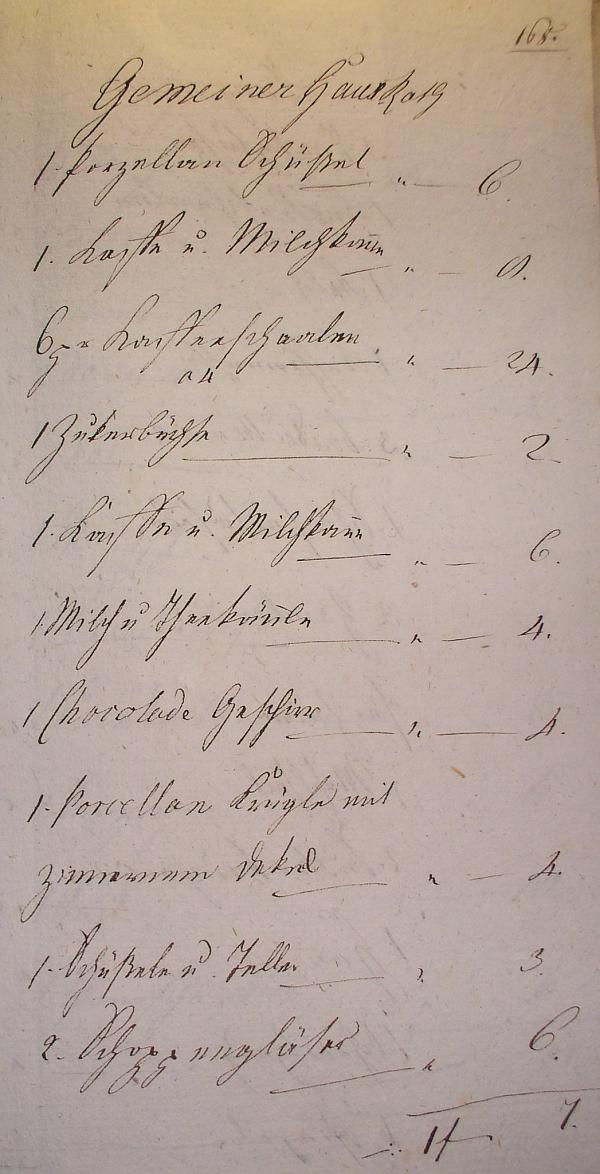 168.
Gemeiner HausRath
1 Porzellan Schüßel „ — 6.
1. Kaffe u. Milchkann „ — 8.
6 pr Kaffeeschaalen „ — 24.
a 4
1 Zukerbüchse „ — 2
1. Kaffe u. Milchkann „ — 6.
1 Milch u Theekännle „ — 4.
1 Chocolade Geschirr „ — 4.
1. Porcellan Krügle mit
zinnernem Dekel „ — 4.
1. Schüßele u. Teller „ 3.
2. Schoppengläser „ 6.
1 f 7.